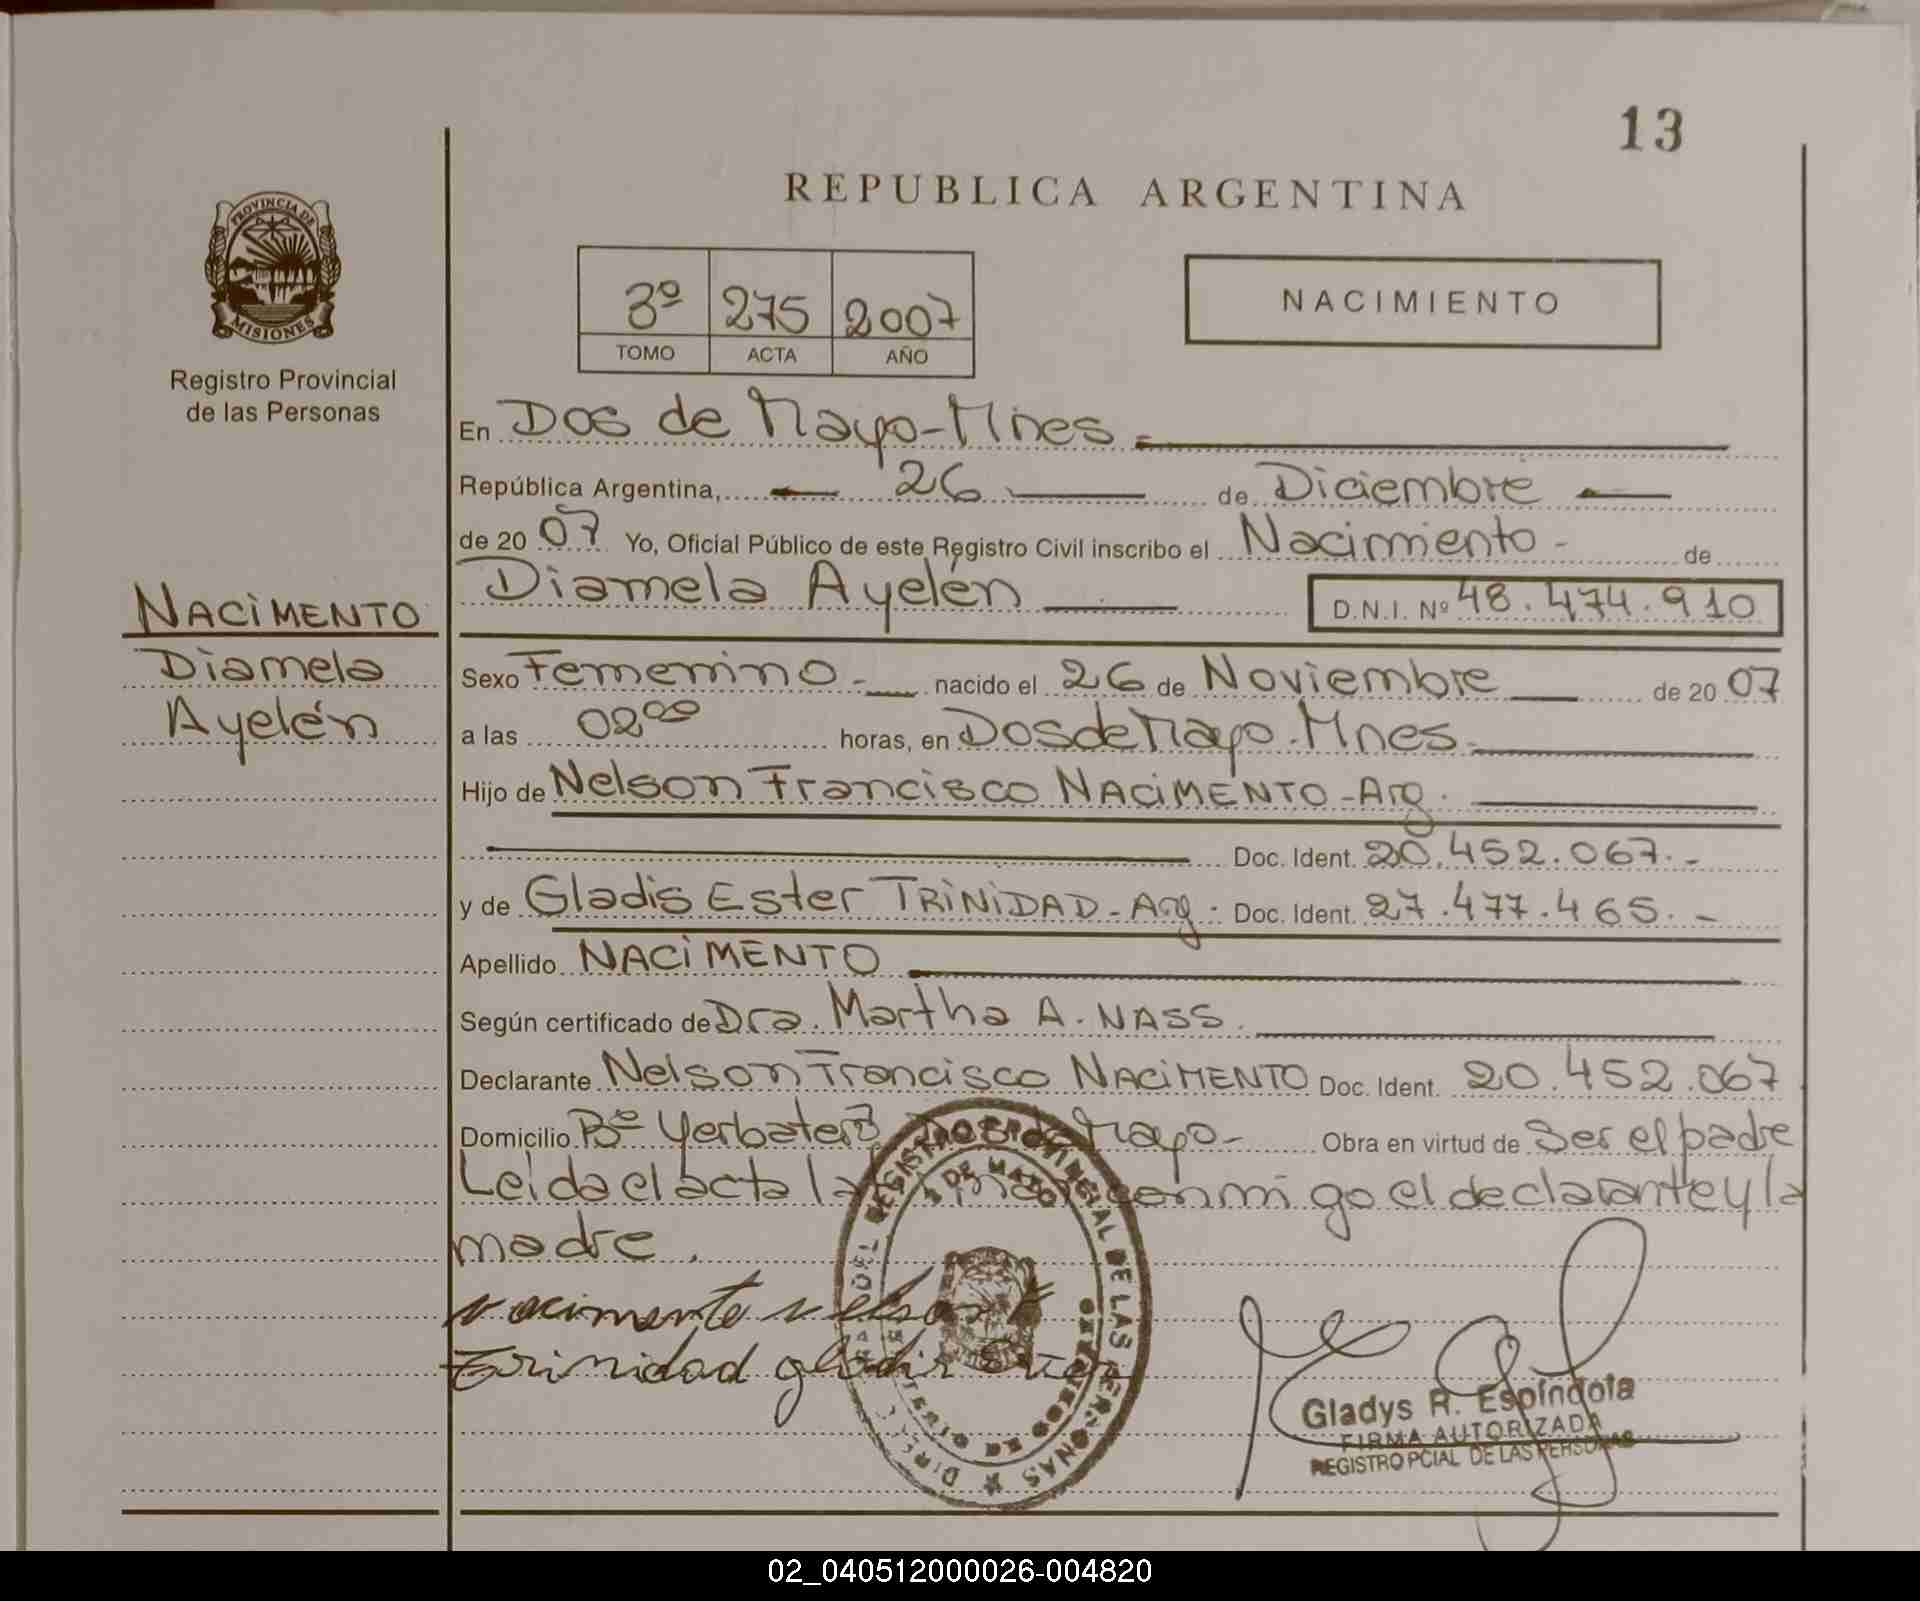 13
REPUBLICA ARGENTINA
PROVINCIA DE
MISIONES
Registro Provincial
de las Personas
3º 275 2007
TOMO ACTA AÑO
NACIMIENTO
En Dos de Mayo-Mnes.
República Argentina, 26 de Diciembre
de 20 07 Yo, Oficial Público de este Registro Civil inscribo el Nacimiento - de
Diamela Ayelén D.N.I. Nº 48.474.910
NACIMENTO
Diamela
Ayelén
Sexo Femenino - nacido el 26 de Noviembre de 20 07
a las 02⁰⁰ horas, en Dos de Mayo. Mnes.
Hijo de Nelson Francisco NACIMENTO - Arg.
Doc. Ident. 20.452.067.-
y de Gladis Ester TRINIDAD - Arg. Doc. Ident. 27.477.465.-
Apellido NACIMENTO
Según certificado de Dra. Martha A. NASS.
Declarante Nelson Francisco NACIMENTO Doc. Ident. 20.452.067
Domicilio Bº Yerbatero Mayo- Obra en virtud de Ser el padre
Leída el acta la conmigo el declarante y la
madre.
Nacimento Nelson F
Trinidad gladis Ester
REGISTRO PROVINCIAL DE LAS PERSONAS
2 DE MAYO
Gladys R. Espíndola
FIRMA AUTORIZADA
REGISTRO PCIAL DE LAS PERSONAS
02_040512000026-004820